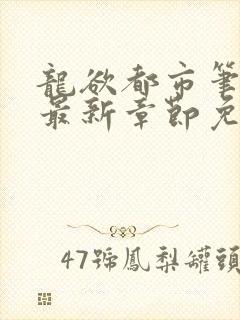 龍欲都市筆
最新章節免
47號鳳梨罐頭